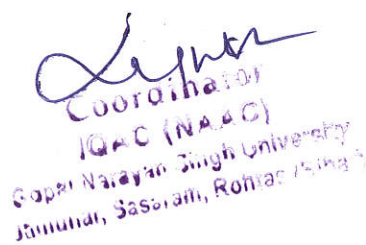 Coordinator
IQAC (NAAC)
Gopal Narayan Singh University
Jamuhar, Sasaram, Rohtas